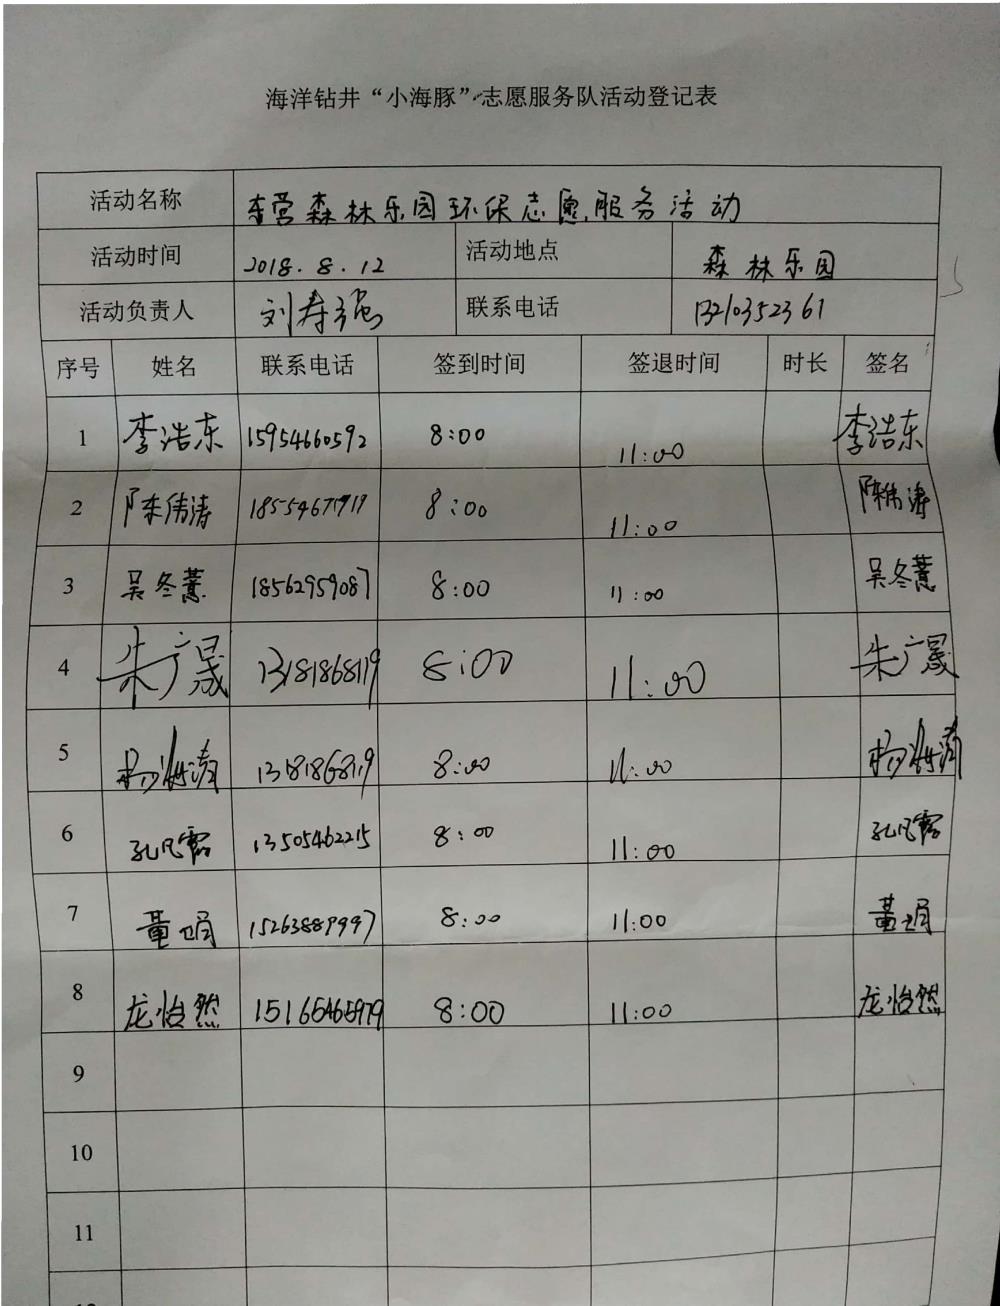 海洋钻井“小海豚”志愿服务队活动登记表
活动名称 东营森林乐园环保志愿服务活动
活动时间 2018.8.12 活动地点 森林乐园
活动负责人 刘寿强 联系电话 13210352361
序号 姓名 联系电话 签到时间 签退时间 时长 签名
1 李浩东 15954660592 8:00 11:00 李浩东
2 陈伟涛 18554671919 8:00 11:00 陈伟涛
3 吴冬薏 18562959087 8:00 11:00 吴冬薏
4 朱广晟 13181868119 8:00 11:00 朱广晟
5 杨海涛 13181868119 8:00 11:00 杨海涛
6 孔凡霞 13505462215 8:00 11:00 孔凡霞
7 董卫娟 15263889997 8:00 11:00 董卫娟
8 龙怡然 15165465979 8:00 11:00 龙怡然
9
10
11